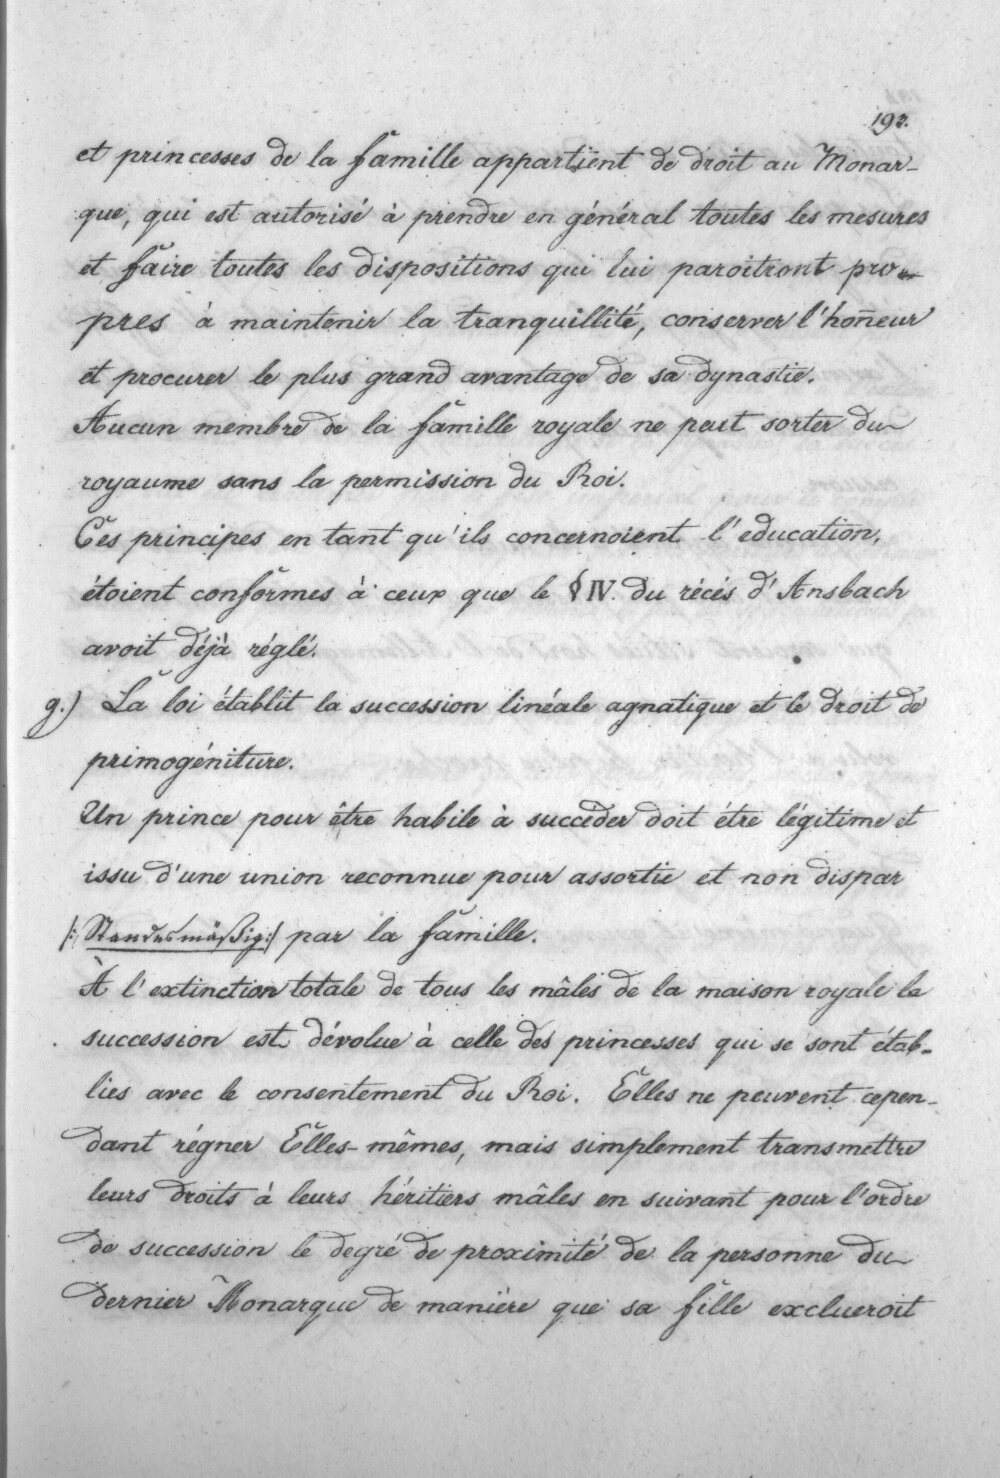 193.
et princesses de la famille appartient de droit au Monar-
que, qui est autorisé à prendre en général toutes les mesures
et faire toutes les dispositions qui lui paroitront pro-
pres à maintenir la tranquillité, conserver l'hoñeur
et procurer le plus grand avantage de sa dynastie.
Aucun membre de la famille royale ne peut sorter du
royaume sans la permission du Roi.
Ces principes en tant qu'ils concernoient l'education,
étoient conformes à ceux que le § IV. du récés d'Ansbach
avoit déjà réglé.
g.) La loi établit la succession linéale agnatique et le droit de
primogéniture.
Un prince pour être habile à succéder doit être légitime et
issu d'une union reconnue pour assortie et non dispar
/: Standesmäßig :/ par la famille.
À l'extinction totale de tous les mâles de la maison royale la
succession est dévolue à celle des princesses qui se sont étab-
lies avec le consentement du Roi. Elles ne peuvent cepen-
dant régner Elles-mêmes, mais simplement transmettre
leurs droits à leurs héritiers mâles en suivant pour l'ordre
de succession le degré de proximité de la personne du
dernier Monarque de manière que sa fille exclueroit